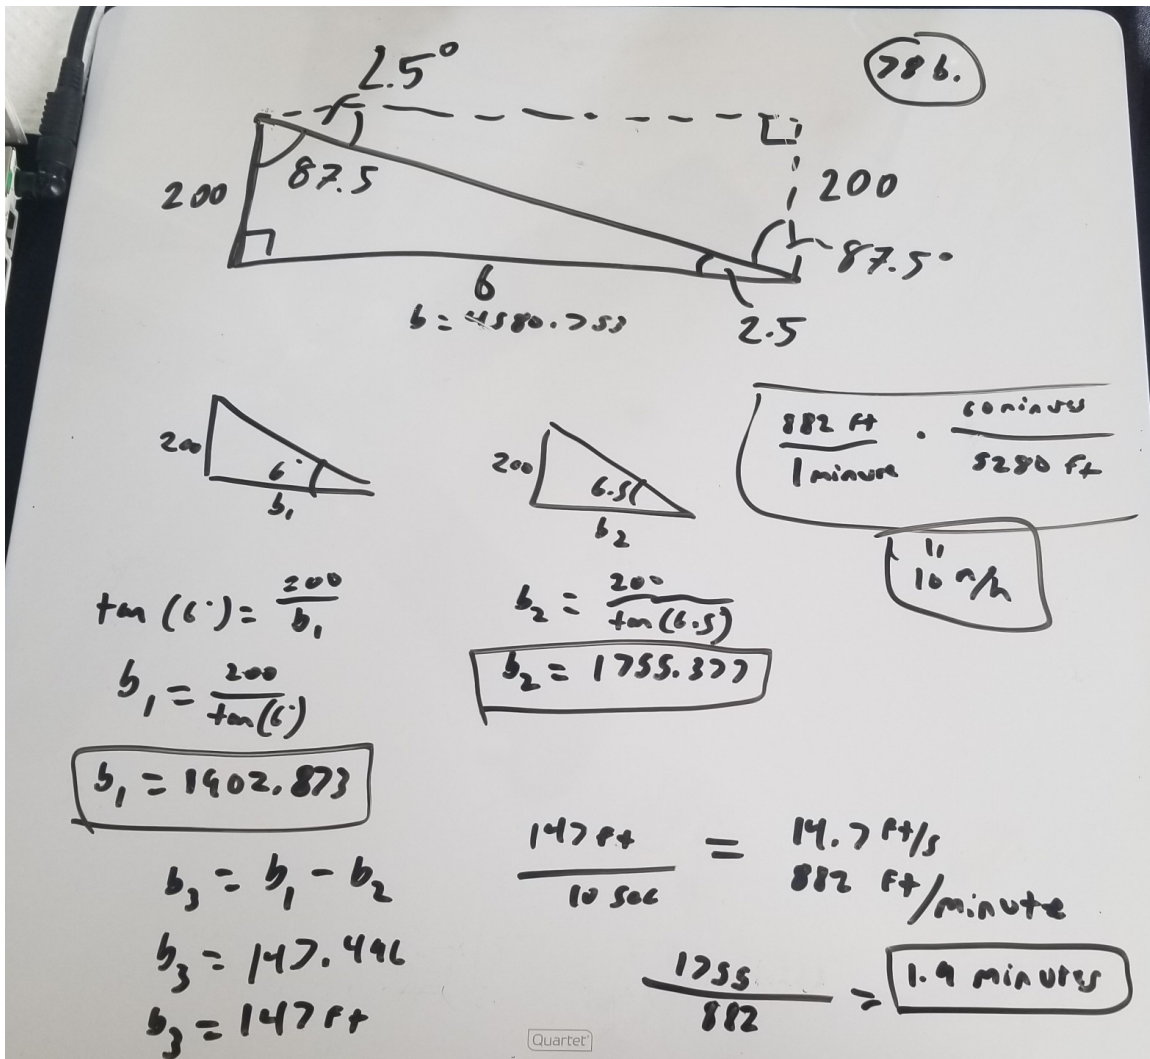 78 b.
2.5°
87.5
200
200
87.5°
b
b = 4580.753
2.5
200
6°
b₁
200
6.5
b₂
882 ft / 1 minute · 60 minutes / 5280 ft
=
10 m/h
tan (6°) = 200 / b₁
b₁ = 200 / tan (6°)
b₁ = 1902.873
b₂ = 200 / tan (6.5)
b₂ = 1755.377
b₃ = b₁ - b₂
b₃ = 147.496
b₃ = 147 ft
147 ft / 10 sec = 14.7 ft/s
882 ft/minute
1755 / 882 = 1.9 minutes
Quartet